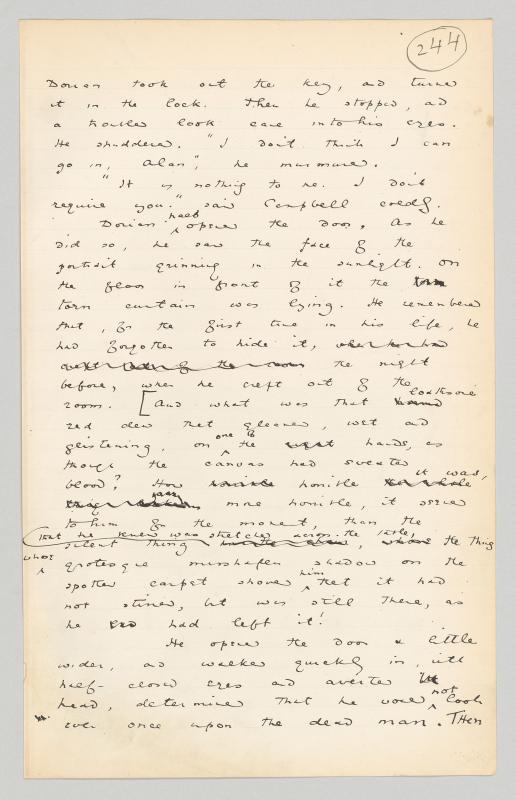 244
Dorian took out the key, and turned
it in the lock. Then he stopped, and
a troubled look came into his eyes.
He shuddered. "I don't think I can
go in, Alan", he murmured.
"It is nothing to me. I don't
require you." said Campbell coldly.
half
Dorian opened the door. As he
did so, he saw the face of the
portrait grinning in the sunlight. On
the floor in front of it the torn
torn curtain was lying. He remembered
that, for the first time in his life, he
had forgotten to hide it,
the night
before, when he crept out of the
loathsome
room. [And what was that
red dew that gleamed, wet and
one of
glistening, on the hands, as
though the canvas had sweated
it was,
blood? How horrible
more horrible, it seemed
to him for the moment, than the
that he knew was stretched across the table,
silent thing, the thing
whose
grotesque misshapen shadow on the
him
spotted carpet showed that it had
not stirred, but was still there, as
he had left it!
He opened the door a little
wider, and walked quickly in, with
half-closed eyes and averted
not
head, determined that he would look
even once upon the dead man. Then